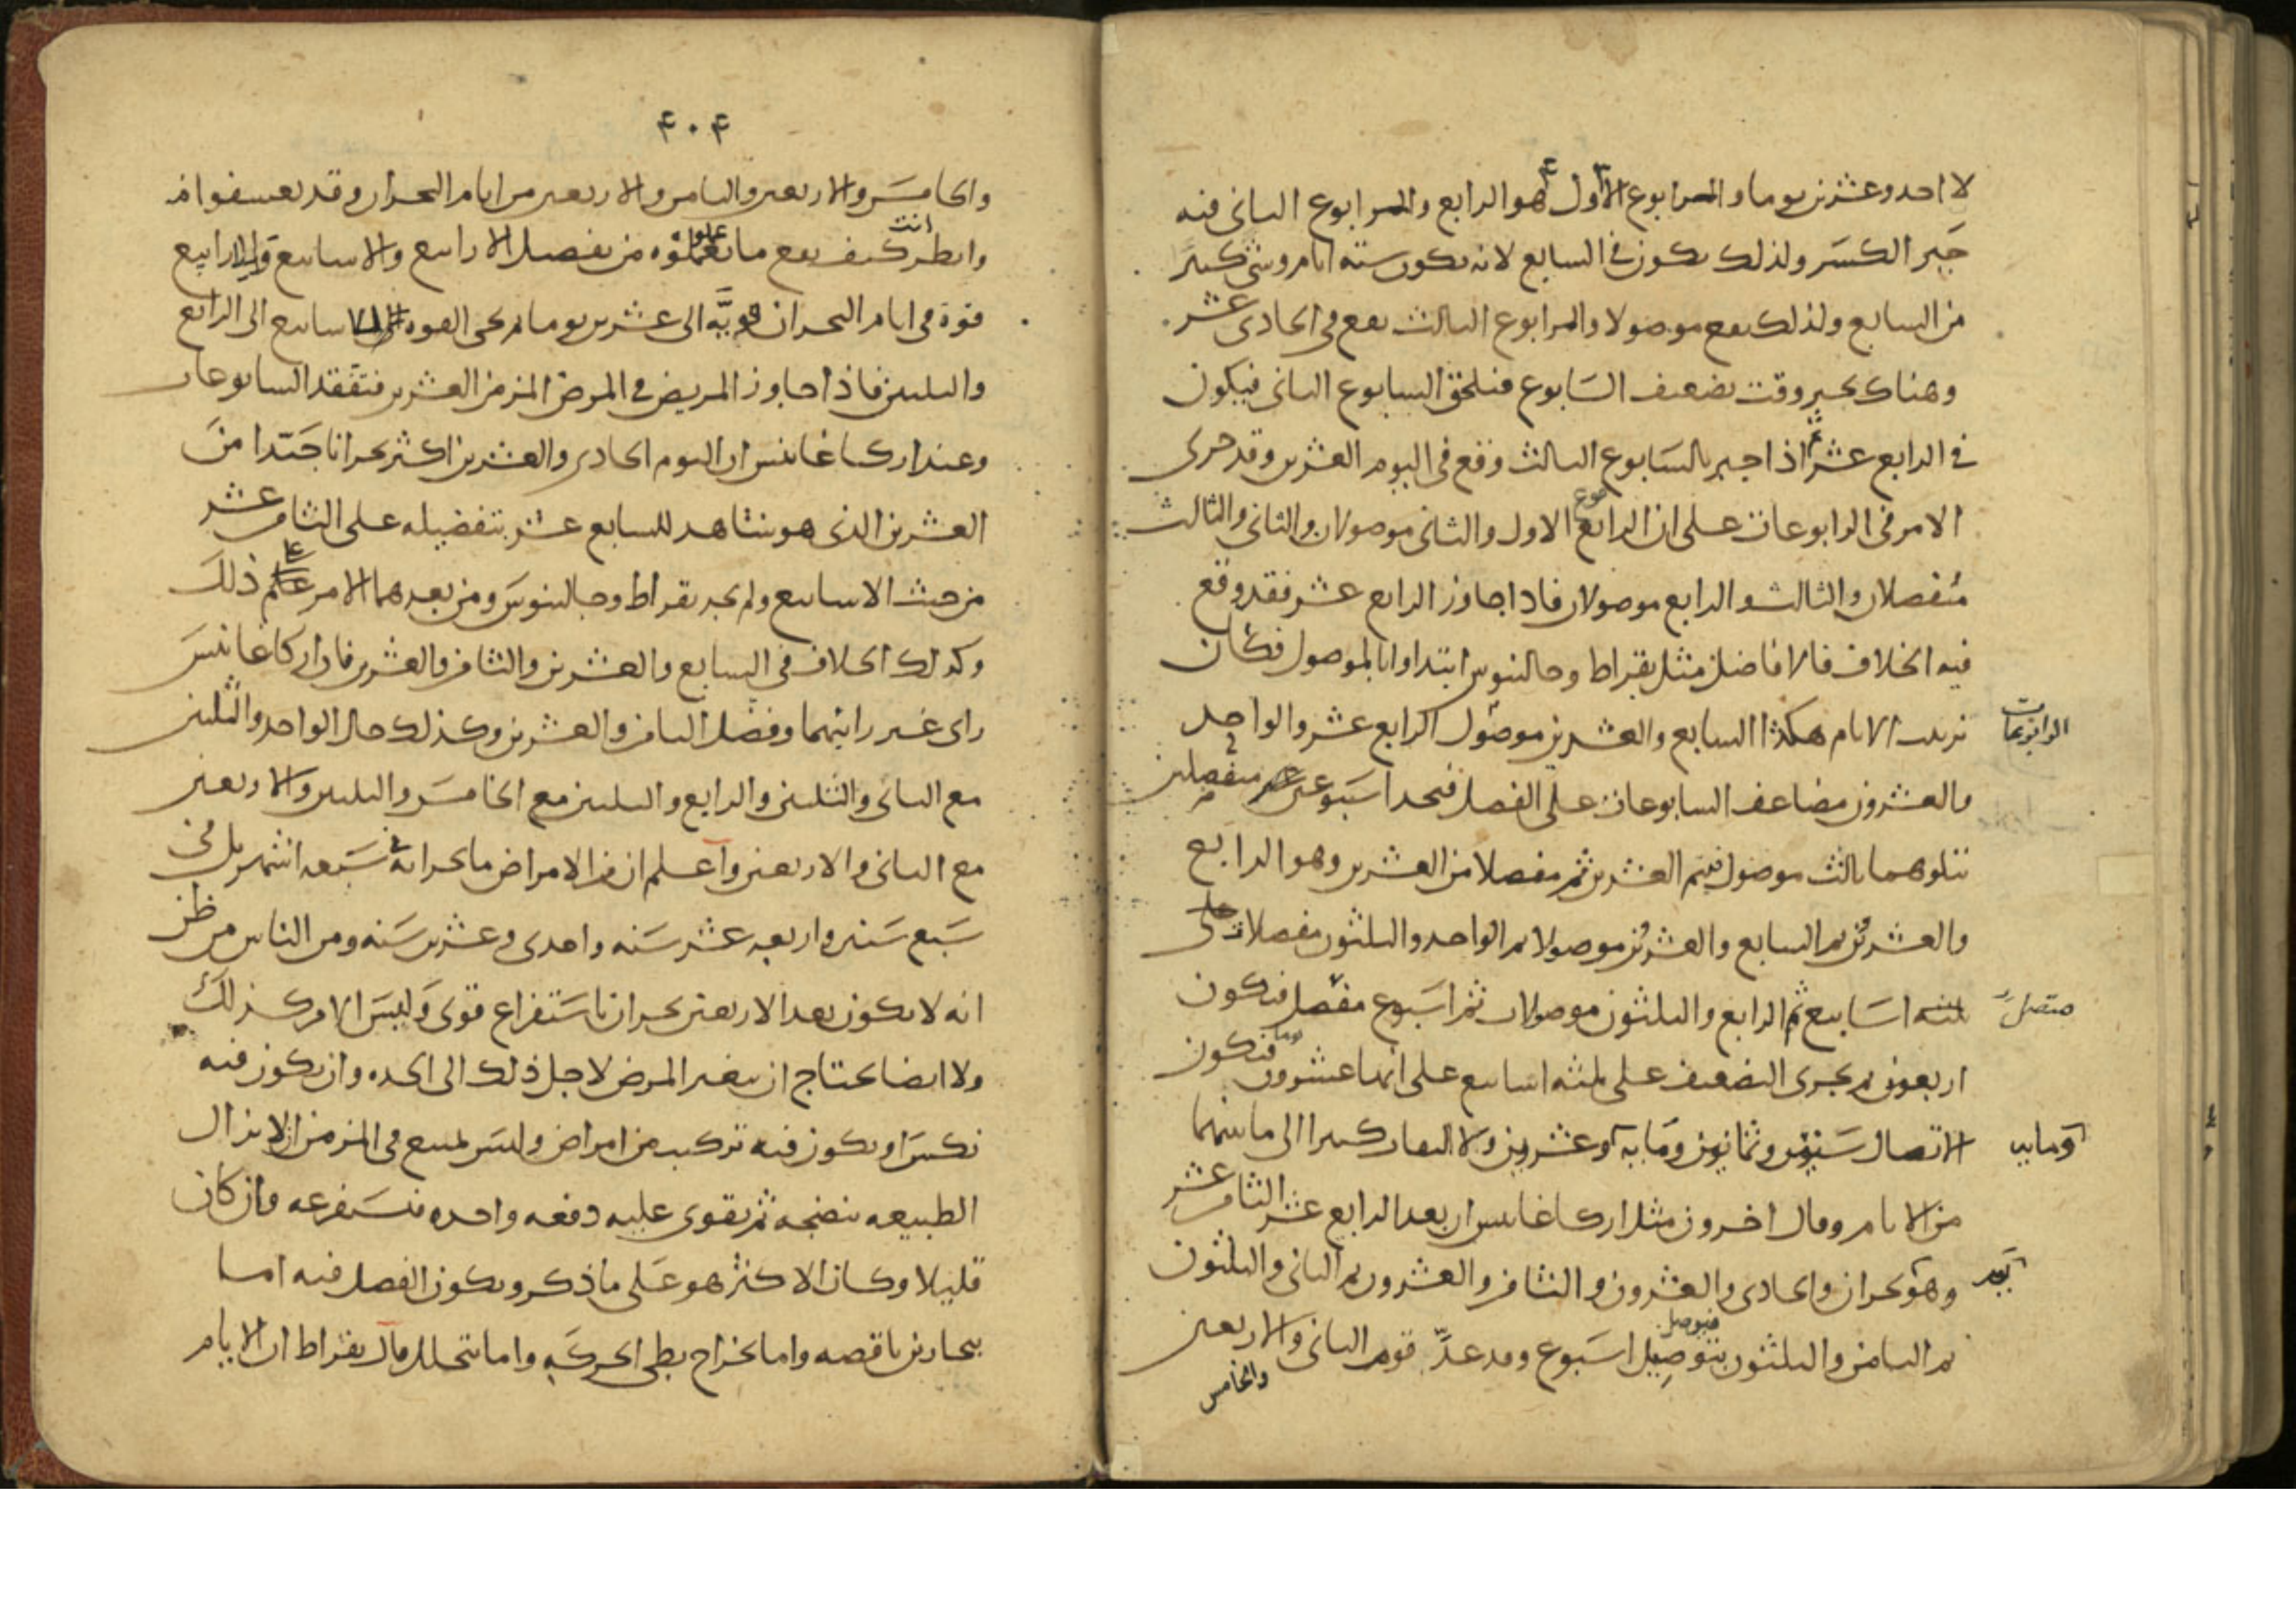 لا احد وعشرين يوما والرابوع الاول هو الرابع والرابوع الثانى فيه
جبر الكسر ولذلك يكون فى السابع لانه يكون ستة ايام وشئ كثير
من السابع ولذلك يقع موصولا والرابوع الثالث يقع فى الحادى عشر
وهناك يجبر وقت تضعيف السابوع فيلحق السابوع الثانى فيكون
فى الرابع عشر ثم اذا جبر بالسابوع الثالث وقع فى اليوم العشرين وقد جرى
الامر فى الرابوعات على ان الرابوع الاول والثانى موصولان والثانى والثالث
منفصلان والثالث والرابع موصولان فاذا جاوز الرابع عشر فقد وقع
فيه الخلاف فالافاضل مثل بقراط وجالينوس ابتداوا بالموصول فكان
ترتيب الايام هكذا السابع والعشرين موصول الرابع عشر والواحد
الرابوعات
والعشرون مضاعف السابوعات على الفصل فنجد اسبوعين منفصلين
يتلوهما ثالث موصول فيتم العشرين ثم مفصلا من العشرين وهو الرابع
والعشرين ثم السابع والعشرين موصولا ثم الواحد والثلثون مفصلا على
ثلثه اسابيع ثم الرابع والثلثون موصولان ثم اسبوع مفصل فيكون
متصل
اربعون ثم يجرى التضعيف على ثلثه اسابيع على انها عشرون يوما فيكون
الاتصال ستين وثمانين ومايه وعشرين ولا التفات كثيرا الى ما بينهما
ومايه
من الايام وقال اخرون مثل اركاغانيس ان بعد الرابع عشر الثامن عشر
وهو بحران والحادى والعشرون والثامن والعشرون ثم الثانى والثلثون
ثم الثامن والثلثون بتوصيل اسبوع وقد عدّ قوم الثانى والاربعين
فيوصل
والخامس
۴۰۴
والخامس والاربعين والثامن والاربعين من ايام البحران وقد تعسفوا فى
وانظر انت كيف يقع ما تعملوه من تفصل الارابيع والاسابيع وللارابيع
قوة فى ايام البحران قويّه الى عشرين يوما ثم يجى القوه للاسابيع الى الرابع
والثلثين فاذا جاوز المريض فى المرض المزمن العشرين فتفقد السابوعات
وعند اركاغانيس ان اليوم الحادى والعشرين اكثر بحرانا جيدا من
العشرين الذى هو شاهد للسابع عشر بتفضيله على الثامن عشر
من حيث الاسابيع ولم يجد بقراط وجالينوس ومن بعدهما الامر على ذلك
وكذلك الخلاف فى السابع والعشرين والثامن والعشرين فان اركاغانيس
راى غير رايهما وفضل الثامن والعشرين وكذلك حال الواحد والثلثين
مع الثانى والثلثين والرابع والثلثين مع الخامس والثلثين والاربعين
مع الثانى والاربعين واعلم ان من الامراض ما بحرانه فى سبعه اشهر بل فى
سبع سنين واربعه عشر سنه واحدى وعشرين سنه ومن الناس من ظن
انه لا يكون بعد الاربعين بحران باستفراغ قوى وليس الامر كذلك
ولا ايضا يحتاج ان يتغير المرض لاجل ذلك الى الحده وان يكون فيه
نكس او يكون فيه تركيب من امراض وليس يمتنع فى المزمن ان لا يزال
الطبيعه ينضجه ثم يقوى عليه دفعه واحده فيستفرغه وان كان
قليلا وكان الاكثر هو على ما ذكر ويكون الفصل فيه اما
ببحارين ناقصه واما بخراج بطى الحركه واما بتحلل قال بقراط ان الايام